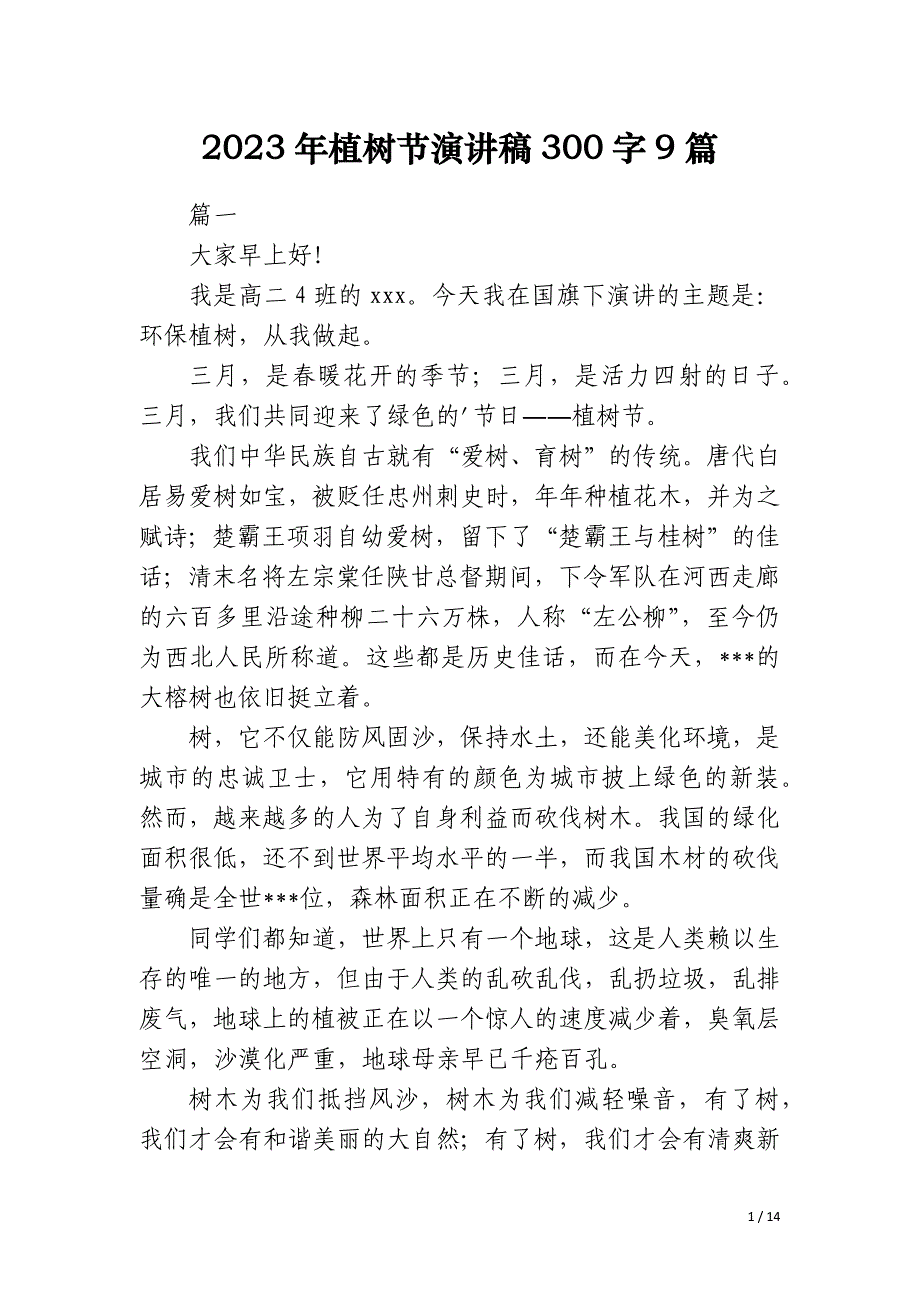 2023年植树节演讲稿300字9篇
篇一
大家早上好！
我是高二4班的xxx。今天我在国旗下演讲的主题是：
环保植树，从我做起。
三月，是春暖花开的季节；三月，是活力四射的日子。
三月，我们共同迎来了绿色的'节日——植树节。
我们中华民族自古就有“爱树、育树”的传统。唐代白
居易爱树如宝，被贬任忠州刺史时，年年种植花木，并为之
赋诗；楚霸王项羽自幼爱树，留下了“楚霸王与桂树”的佳
话；清末名将左宗棠任陕甘总督期间，下令军队在河西走廊
的六百多里沿途种柳二十六万株，人称“左公柳”，至今仍
为西北人民所称道。这些都是历史佳话，而在今天，***的
大榕树也依旧挺立着。
树，它不仅能防风固沙，保持水土，还能美化环境，是
城市的忠诚卫士，它用特有的颜色为城市披上绿色的新装。
然而，越来越多的人为了自身利益而砍伐树木。我国的绿化
面积很低，还不到世界平均水平的一半，而我国木材的砍伐
量确是全世***位，森林面积正在不断的减少。
同学们都知道，世界上只有一个地球，这是人类赖以生
存的唯一的地方，但由于人类的乱砍乱伐，乱扔垃圾，乱排
废气，地球上的植被正在以一个惊人的速度减少着，臭氧层
空洞，沙漠化严重，地球母亲早已千疮百孔。
树木为我们抵挡风沙，树木为我们减轻噪音，有了树，
我们才会有和谐美丽的大自然；有了树，我们才会有清爽新
1 / 14